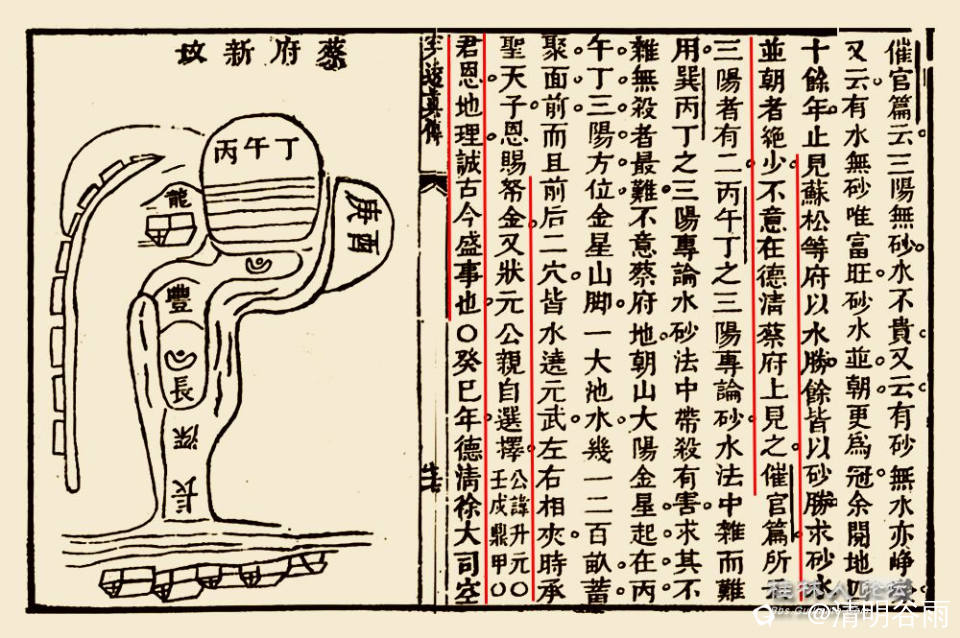 催官篇云三陽無砂水不貴又云有砂無水亦崢嶸
又云有水無砂唯富旺砂水並朝更爲冠余閱地四
十餘年止見蘇松等府以水勝餘皆以砂勝求砂水
並朝者絶少不意在德清蔡府上見之催官篇所云
三陽者有二丙午丁之三陽專論砂水法中雜而難
用巽丙丁之三陽專論水砂法中帶殺有害求其不
雜無殺者最難不意蔡府地朝山大陽金星起在丙
午丁三陽方位金星山脚一大池水幾一二百畝蓄
聚面前而且前后二穴皆水遶元武左右相夾時承
聖天子恩賜帑金又狀元公親自選擇公諱升元壬戌鼎甲〇〇
君恩地理誠古今盛事也〇癸巳年德清徐大司空
真傳
蔡府新坟
丙午丁
庚酉
龍
豐
長
深
長
桂林人论坛
@清明谷雨